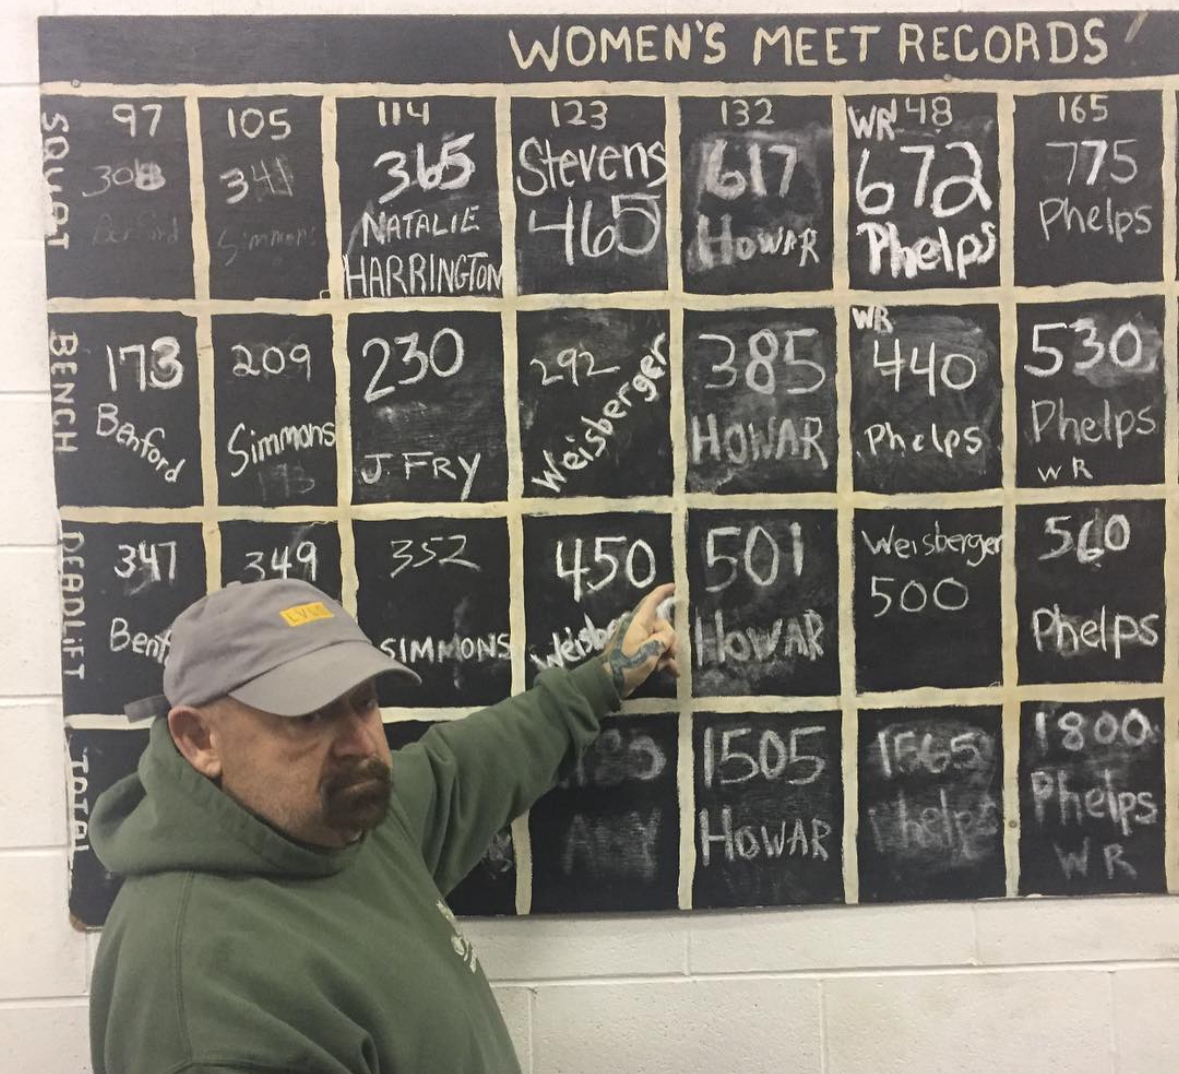 WOMEN'S MEET RECORDS
97 105 114 123 132 WR 148 165
SQUAT
308
341
Simmons
365
NATALIE
HARRINGTON
Stevens
465
617
HOWAR
672
Phelps
775
Phelps
BENCH
173
Benford
209
Simmons
173
230
J FRY
292
Weisberger
385
HOWAR
WR
440
Phelps
530
Phelps
WR
DEADLIFT
347
Benf
349
352
SIMMONS
450
Weisbe
501
HOWAR
Weisberger
500
560
Phelps
TOTAL
AMY
1505
HOWAR
1565
Phelps
1800
Phelps
WR